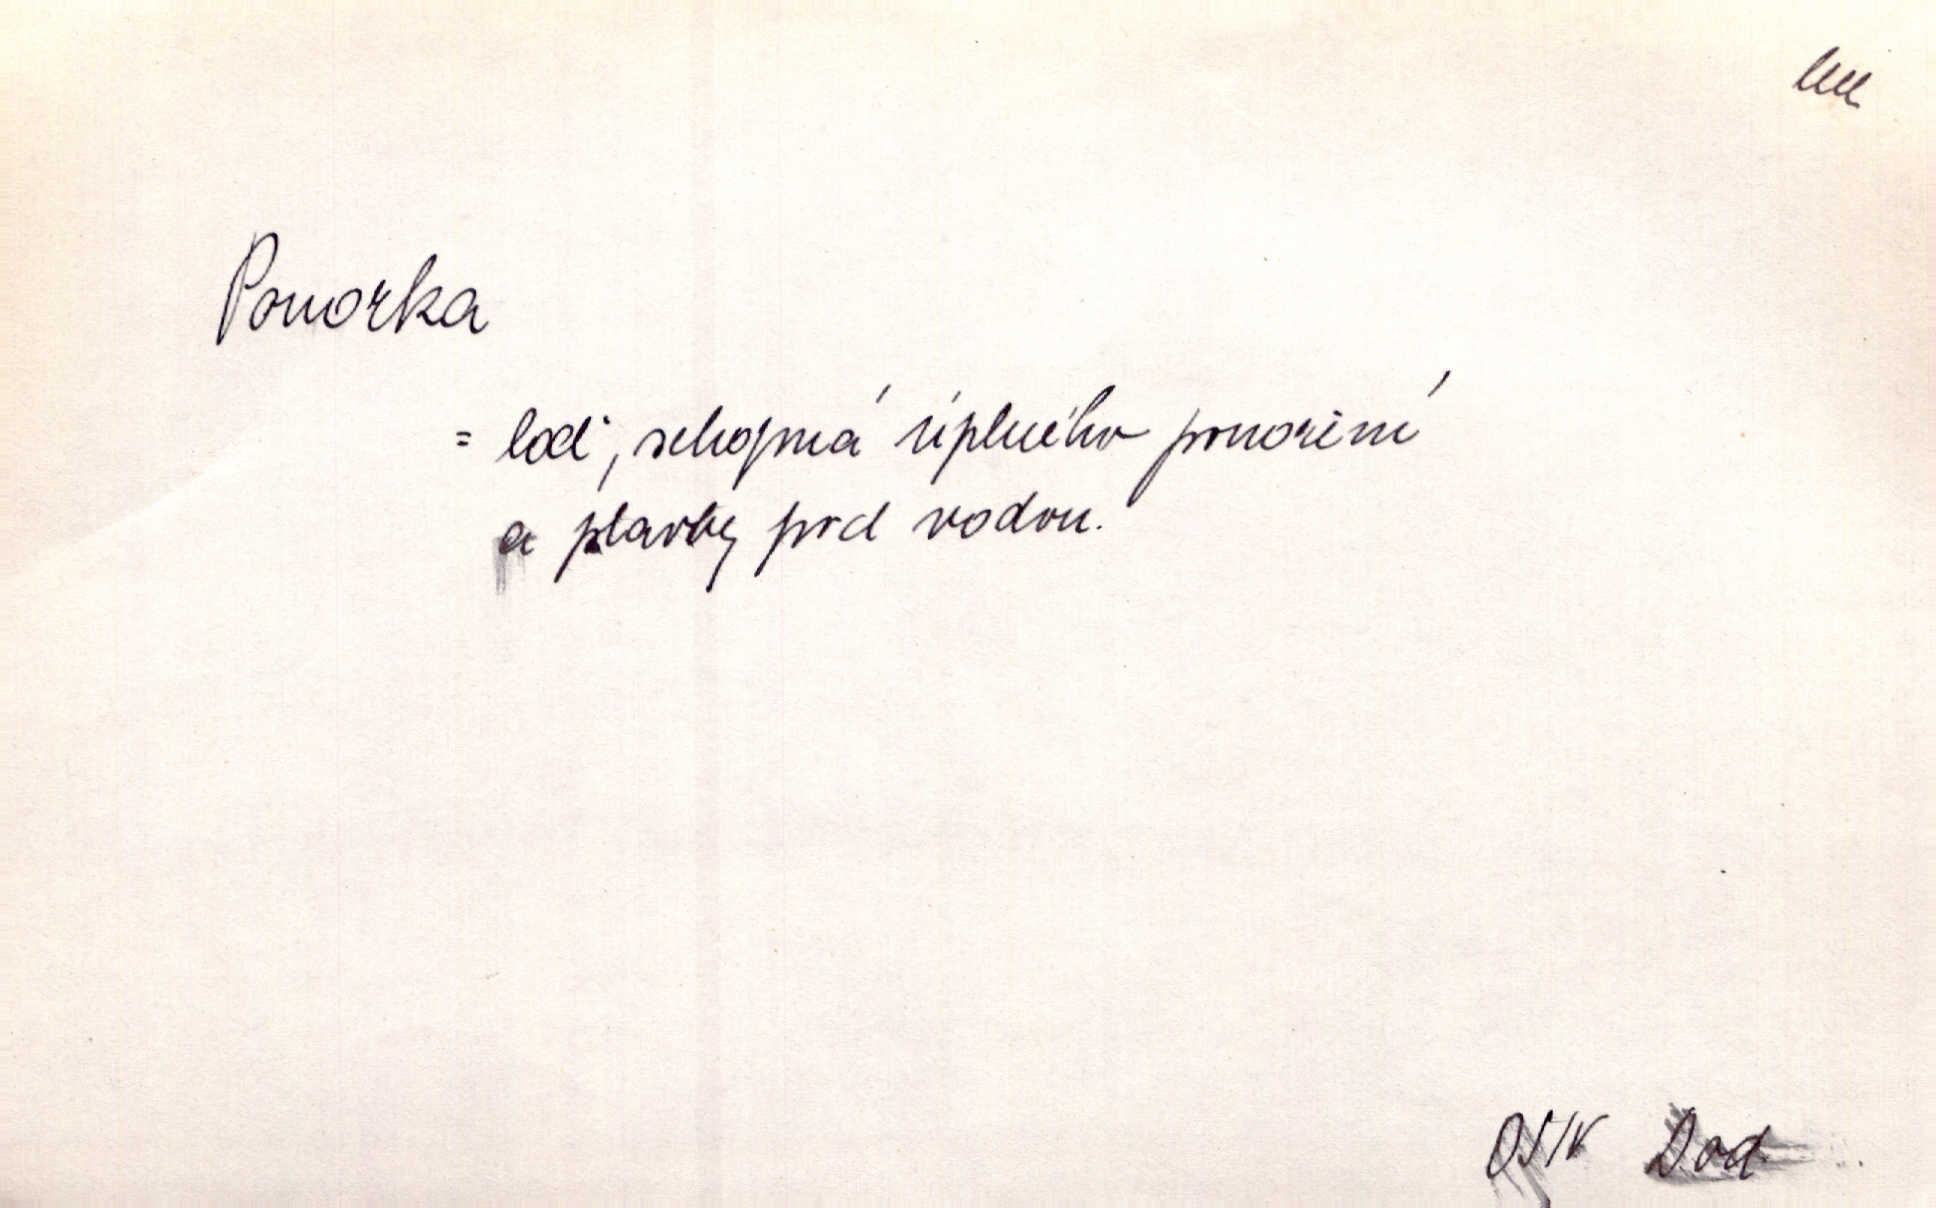 Ponorka
= loď, schopná úplného ponoření
a plavby pod vodou.
OSN Dod.